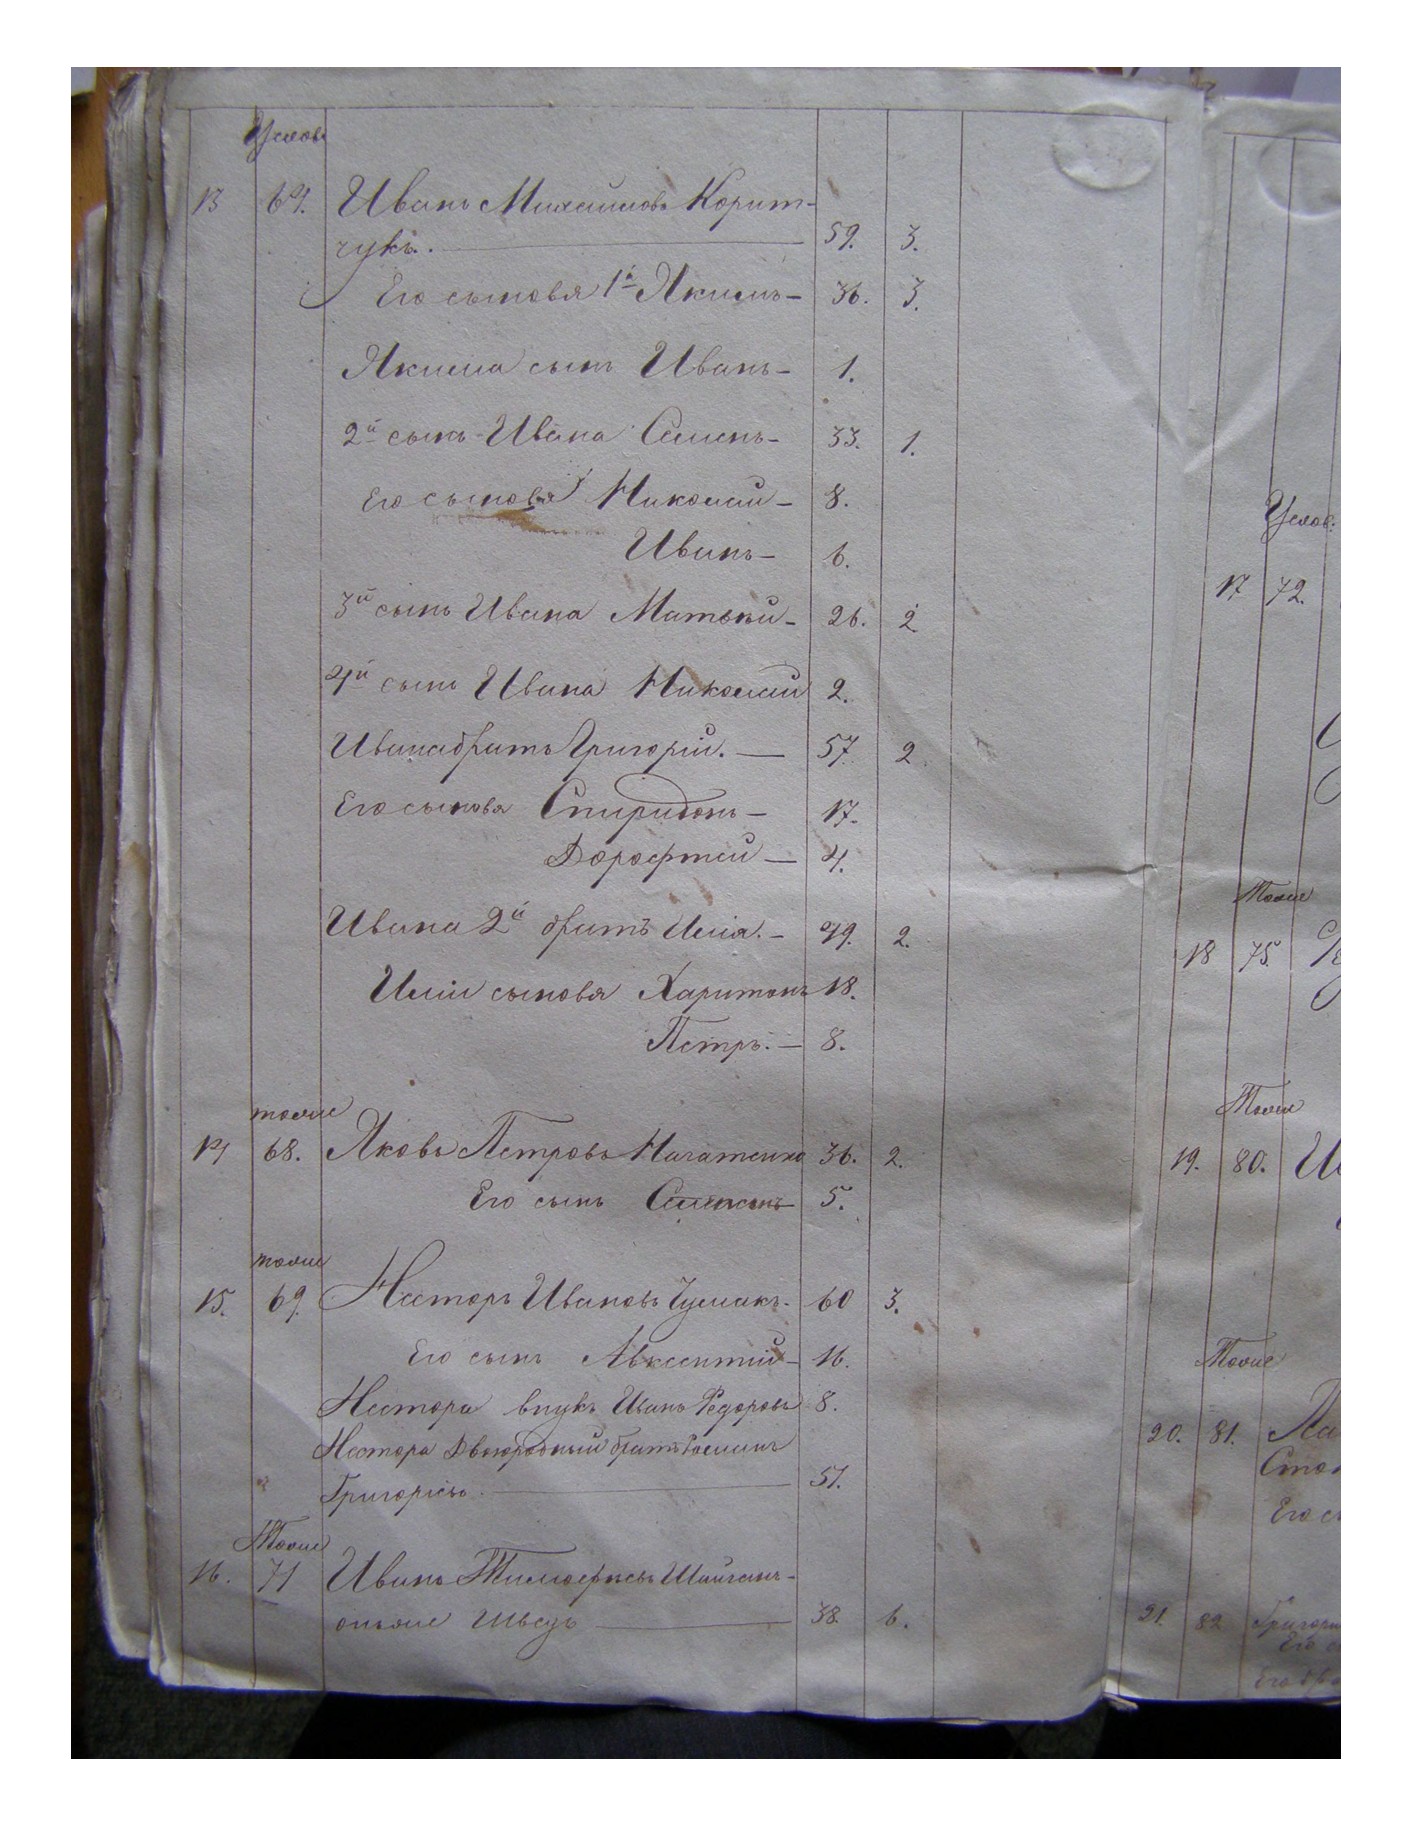 Услов.
13 64. Иванъ Михайловъ Корит-
чукъ. 59. 3.
Его сыновья 1й Якимъ 36. 3.
Якима сынъ Иванъ 1.
2й сынъ Ивана Семенъ 33. 1.
Его сыновья Николай 8.
Иванъ 6.
3й сынъ Ивана Матвѣй 26. 2
4й сынъ Ивана Николай 2.
Ивана братъ Григорій. 57. 2
Его сыновья Спиридонъ 17.
Дорофтей 4.
Ивана 2й братъ Илія. 49. 2.
Иліи сыновья Харитонъ 18.
Петръ. 8.
тоже
14 68. Яковъ Петровъ 36. 2.
Его сынъ Семенъ 5.
тоже
15. 69. Несторъ Ивановъ Чумакъ. 60 3.
Его сынъ Авксентій 16.
Нестора внукъ Иванъ Федоровъ 8.
Нестора Двоюродный братъ
Григорьевъ. 51.
Тоже
16. 71 Иванъ Тимофеевъ
онъже Шведъ 38 6.
Услов:
17 72.
Тоже
18 75.
Тоже
19. 80.
Тоже
20. 81.
Его
21. 82 Григори
Его
Его